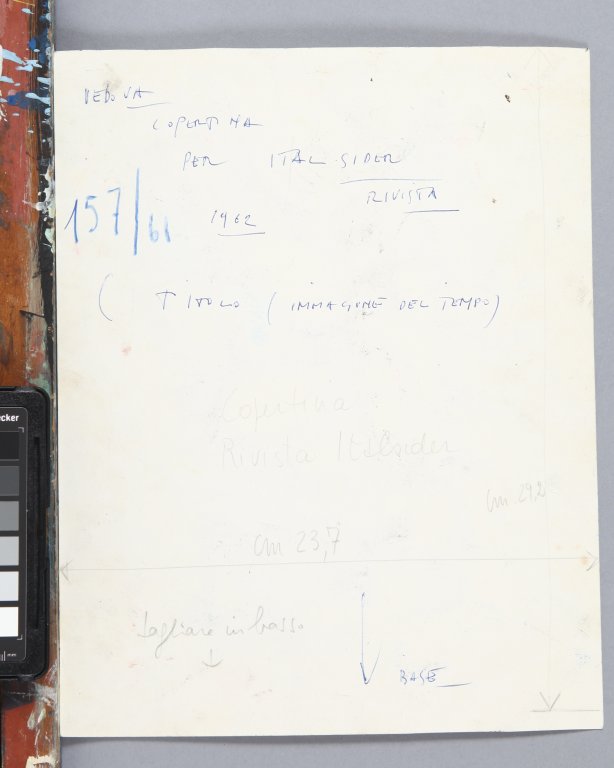 VEDOVA
COPERTINA
PER ITALSIDER
RIVISTA
157/61
1962
( TITOLO ( IMMAGINE DEL TEMPO )
Copertina
Rivista Italsider
cm 29,2
cm 23,7
tagliare in basso
BASE
ecker